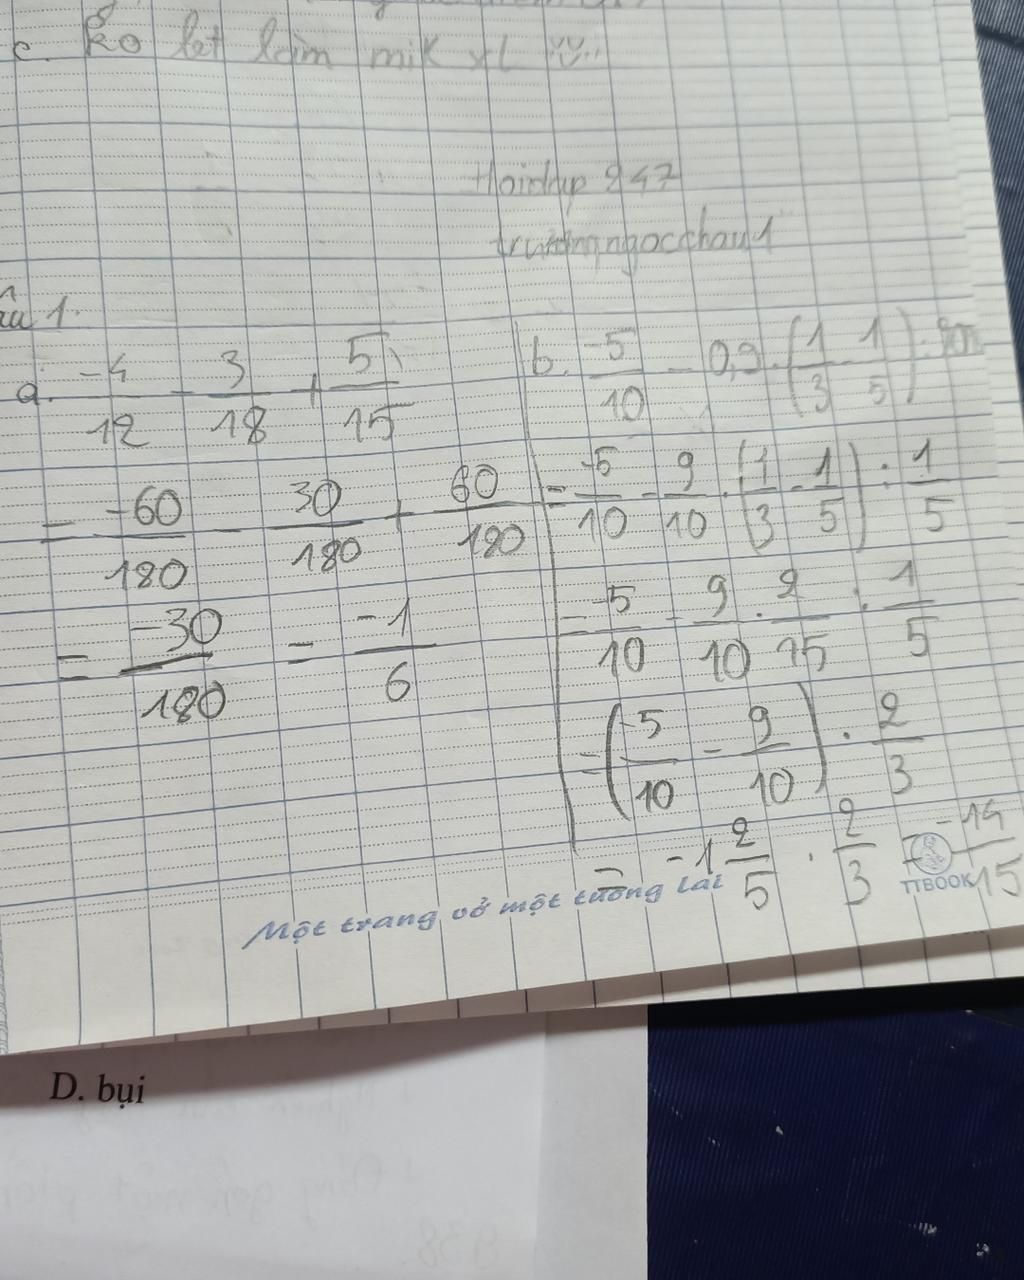 c. ko bt làm mik xl
Hoidap 247
trươngngocchau1
âu 1.
a. -4/12 - 3/18 + 5/15
= -60/180 - 30/180 + 60/180
= -30/180 = -1/6
b. -5/10 - 0,9 . (1/3 - 1/5) :
= -5/10 - 9/10 . (1/3 - 1/5) : 1/5
= -5/10 - 9/10 . 2/15 : 1/5
= (-5/10 - 9/10) . 2/3
= -1 2/5 . 2/3 = -14/15
Một trang vở một tương lai
TTBOOK
D. bụi